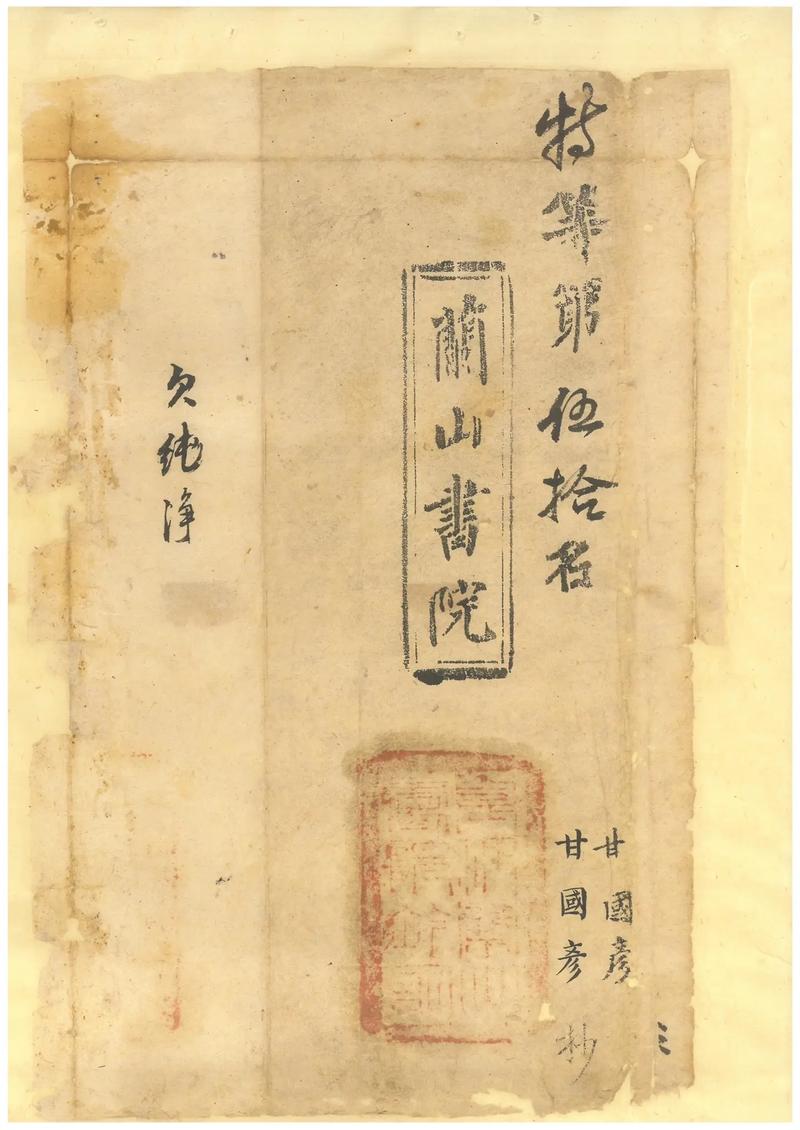 特等第伍拾名
甘國彥
甘國彥 抄
蘭山書院
欠純淨